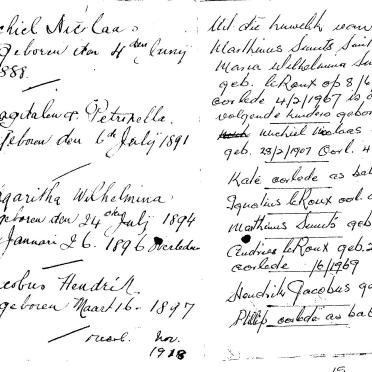 chiel Nicolaas
geboren den 4den Junij
1888.
Magitalena Petronella
geboren den 6de Julij 1891
garitha Wilhelmina
geboren den 24ste Julij 1894
Januari 26. 1896 Overleden
acobus Hendrik
geboren Maart 16 - 1897
Nov.
1918
Uit die huwelik van
Marthinus Smuts Smit
Maria Wilhelmina Su
geb. le Roux op 8/6
oorlede 4/2/1967 is d
volgende kinders gebor
Michiel Nicolaas
geb. 28/2/1907 Oorl. 4
Kate oorlede as bab
Ignatius le Roux oorl. a
Marthinus Smuts geb
Andries le Roux geb. 2
oorlede 16/1969
Hendrik Jacobus g
Philip oorlede as bab